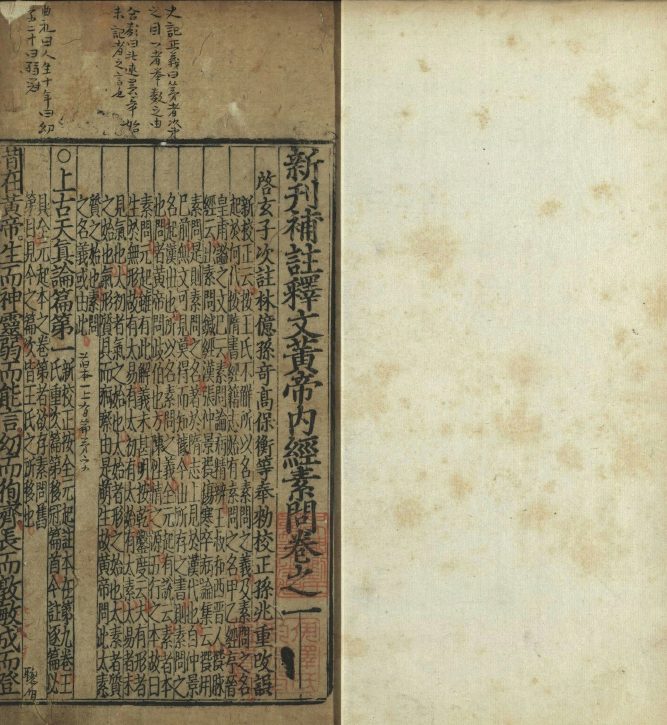 史記正義曰
之目一者舉數之由
未記者之言也
曲礼曰人生十年曰幼
二十曰弱冠
新刊補註釋文黃帝內經素問卷之一
啓玄子次註林億孫奇高保衡等奉敕校正孫兆重改誤
新校正云按王氏不解所以名素問之義及素問之名
起於何代按隋書經籍志始有素問之名甲乙經序晉
皇甫謐之文已云素問論病精辨王叔和西晉人撰脉
經云出素問鍼經漢張仲景撰傷寒卒病論集云撰用
素問是則素問之名著於隋志上見於漢代也自仲景
已前無文可見莫得而知據今世所存之書則素問之
名起漢世也所以名素問之義全元起有說云素者本
也問者黃帝問岐伯也方陳性情之源五行之本故曰
素問元起雖有此解義未甚明按乾鑿度云夫有形者
生於無形故有太易有太初有太始有太素太易者未
見氣也太初者氣之始也太始者形之始也太素者質
之始也氣形質具而痾瘵由是萌生故黃帝問此太素
質之始也素問
之名義或由此
○上古天真論篇第一
新校正按全元起註本在第九卷王
氏重次篇第移冠篇首今註逐篇必
具全元起本之卷第者欲存素問舊
第目見今之篇次皆王氏之所移也
昔在黃帝生而神靈弱而能言幼而徇齊長而敦敏成而登